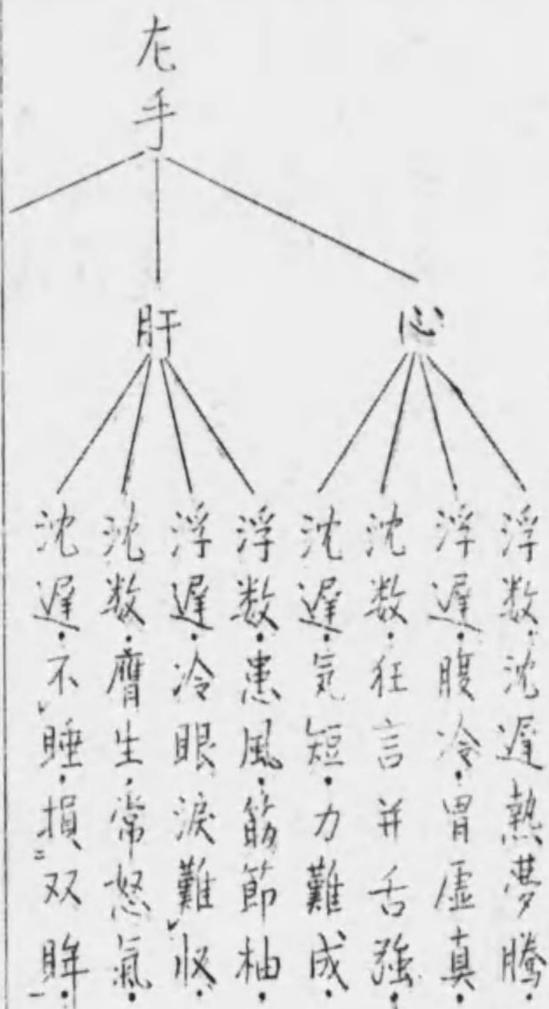 左手
心
浮数・沈遅熱夢騰・
浮遅・腹冷・胃虚真・
沈数・狂言并舌強・
沈遅・気短・力難成・
肝
浮数・患風・筋節柚・
浮遅・冷眼涙難収・
沈数・膺生・常怒氣・
沈遅・不睡・損双眸・